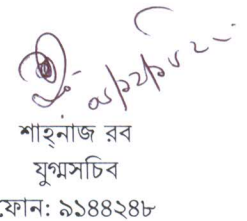 শাহ্‌নাজ রব
যুগ্মসচিব
ফোন: ৯১৪৪২৪৮